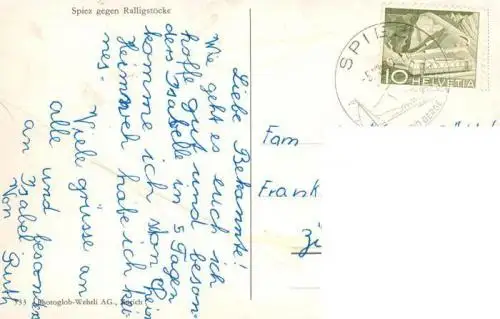 Spiez gegen Ralligstöcke
Liebe Bekannte!
Wie geht es euch ich
hoffe gut und beson-
ders Isabelle in 5 Tagen
komme ich von hein
Heimweh habe ich kei-
nes.
Viele grüsse an
alle und besonders
an Isabel von
Ruth
733 Photoglob-Wehrli AG., Zürich
SPIEZ
10 HELVETIA
Fam
Frank
Zü